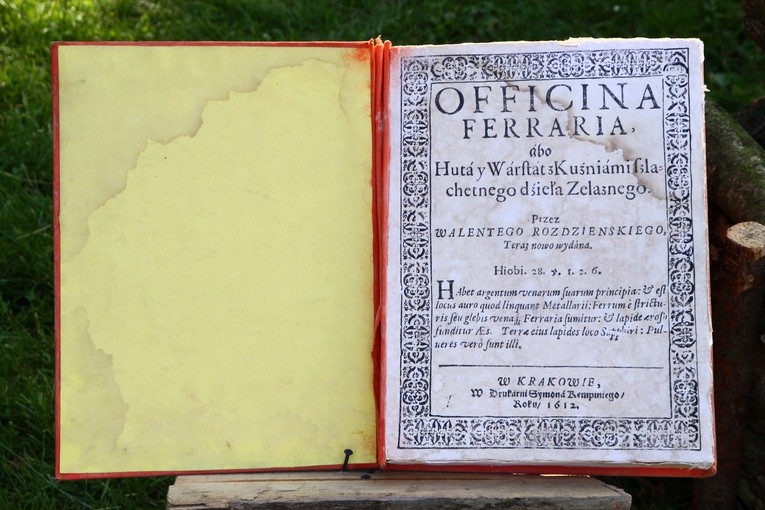 OFFICINA
FERRARIA,
ábo
Hutá y Wárstat z Kuźniámi szla-
chetnego dźieła Zelaznego.
Przez
WALENTEGO ROZDZIENSKIEGO,
Teraz nowo wydána.
Hiobi. 28. ℣. 1. 2. 6.
Habet argentum venarum suarum principia: & est
locus auro quod linquant Metallarii: Ferrum è strictu-
ris seu glebis venaq́; Ferraria sumitur: & lapide æroso
funditur Æs. Terræ eius lapides loco Sapphiri: Pul-
ueres verò sunt illi.
W KRAKOWIE,
W Drukárni Symoná Kempiniego/
Roku/ 1612.